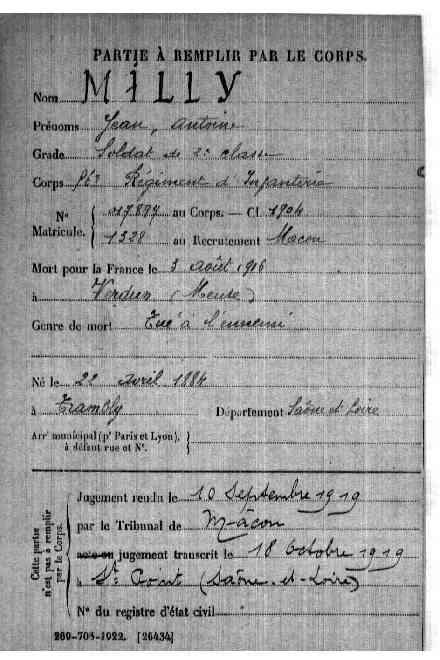 PARTIE À REMPLIR PAR LE CORPS.
Nom MILLY
Prénoms Jean, Antoine
Grade Soldat de 2e classe
Corps Régiment d'Infanterie
N° Matricule. { 17897 au Corps. — Cl. 1904
1328 au Recrutement Macon
Mort pour la France le 3 août 1916
à Verdun (Meuse)
Genre de mort Tué à l'ennemi
Né le 22 Avril 1884
à Trambly Département Saône et Loire
Arrt municipal (pr Paris et Lyon),
à défaut rue et N°. }
Cette partie
n'est pas à remplir
par le Corps.
Jugement rendu le 10 Septembre 1919
par le Tribunal de Mâcon
acte ou jugement transcrit le 18 Octobre 1919
à St Point (Saône-et-Loire)
N° du registre d'état civil
269-708-1922. [26434]